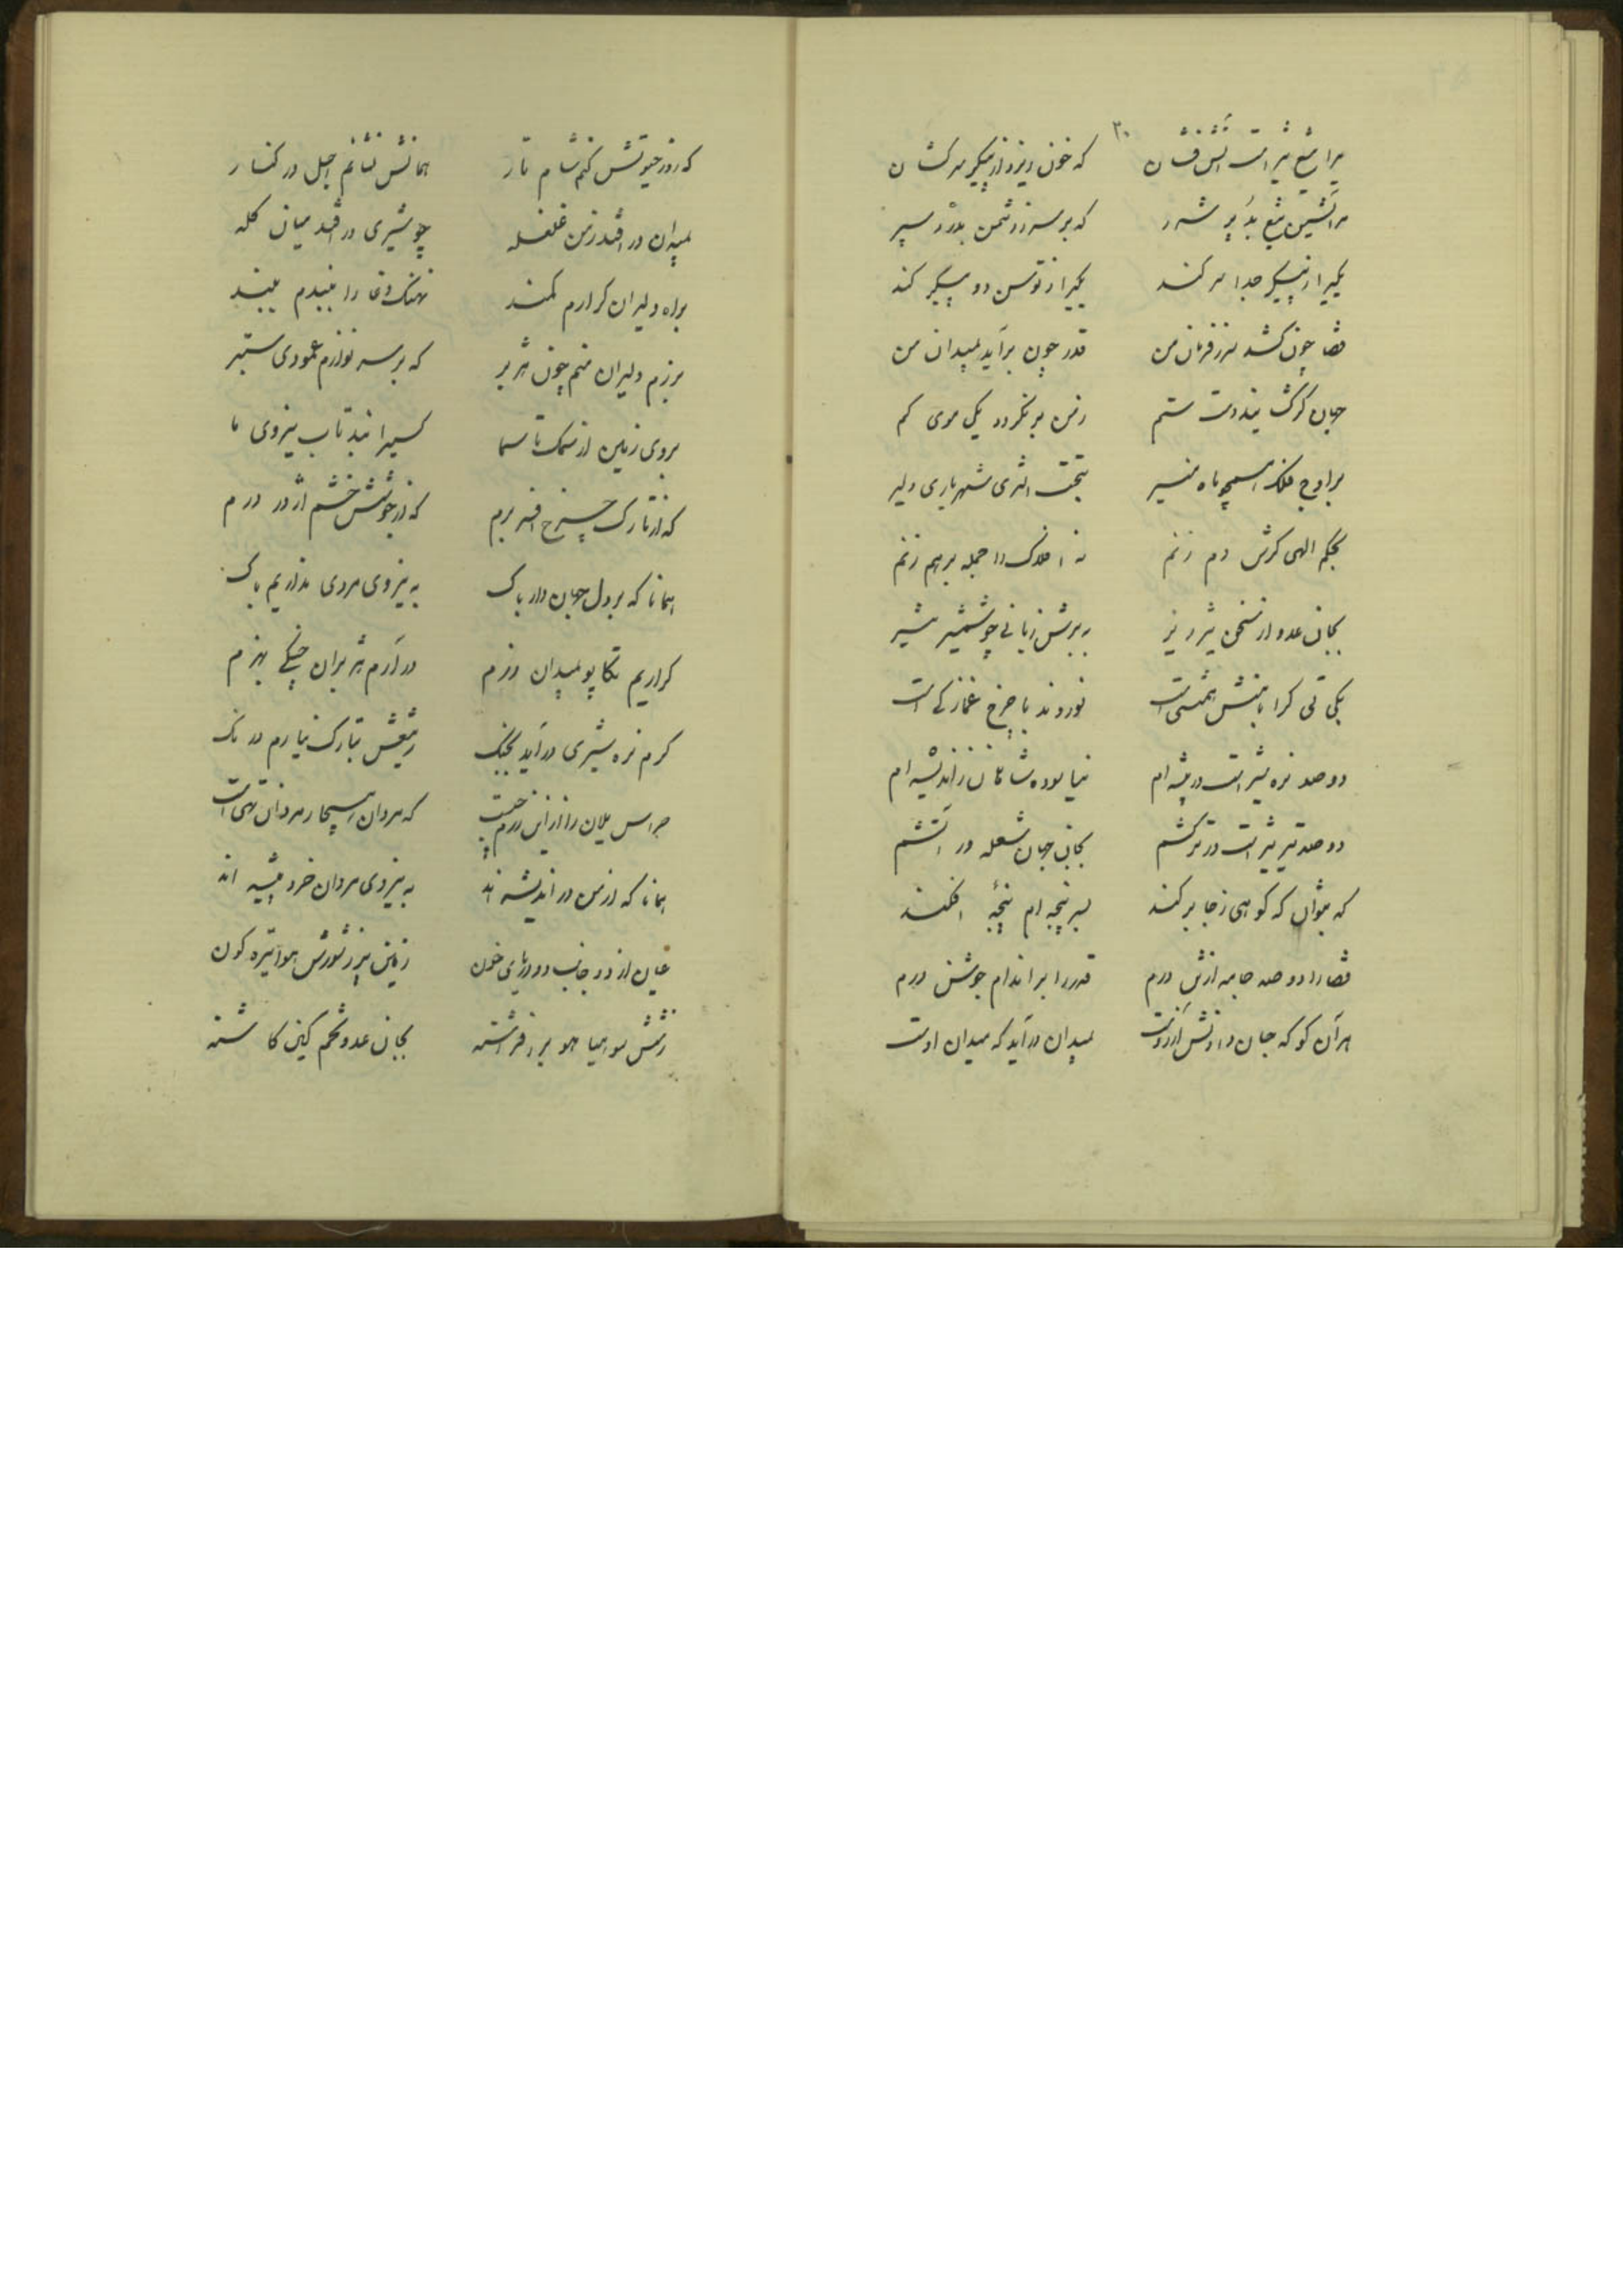 مرا تیغ تیز است آتش فشان
که خون ریزد از پیکر سرکشان
۳۰
که بر سر زد شمن بدرد سپر
یکیرا ز پیکر جدا سر کند
یکیرا ز توسن دو پیکر کند
قضا چون کشد سر ز فرمان من
قدر چون برآید بمیدان من
جهان گر کشد دست ستم
ز من بر نگردد یکی موی کم
بر اوج فلک همچو ماه منیر
بتخت اثری شهریاری دلیر
بحکم الهی گرش دم زنم
نه افلاک را جمله برهم زنم
بجان عدو از سخن تیز و نیز
به برش زبانی چو شمشیر تیز
نیاسوده شاهان ز اندیشه ام
دو صد نره شیر است در بیشه ام
دو صد تیر تیز است در ترکشم
بجان جهان شعله ور آتشم
که بتوان که کوهی ز جا بر کند
بسر پنجه ام پنجه افکند
قضا را دو صد جامه از تن درم
قدر را بر اندام جوشن درم
هر آن کو که جان دادنش آرزوست
بمیدان در آید که میدان اوست
که روز حیوتش کنم شام تار
همانش نشانم اجل در کنار
بمیدان در افتد ز من غلغله
چو شیری در افتد میان گله
براه دلیران گر آرم کمند
نهنگ وغا را ببندم ببند
برزم دلیران منم چون هژبر
که بر سر نوازم عمودی ستبر
بروی زمین از سمک تا سما
کسیرا نبد تاب نیروی ما
که از تارک چرخ افسر برم
که در جوشش خشم اژدر درم
همانا که بر دل جهان دار پاک
به نیروی مردی نداریم باک
گر آریم تکاپو بمیدان رزم
در آرم هژبران جنگی ببزم
گرم نره شیری در آید بجنگ
ز تیغش بتارک نیارم درنگ
هراس یلان را از این رزم چیست
همانا که از من در اندیشه اند
به نیروی مردان خرد پیشه اند
عیان از دو جانب دو دریای خون
زمین پر ز شورش هوا تیره گون
ز شش سو هیاهو بر افراشته
بجان عدو تخم کین کاشته